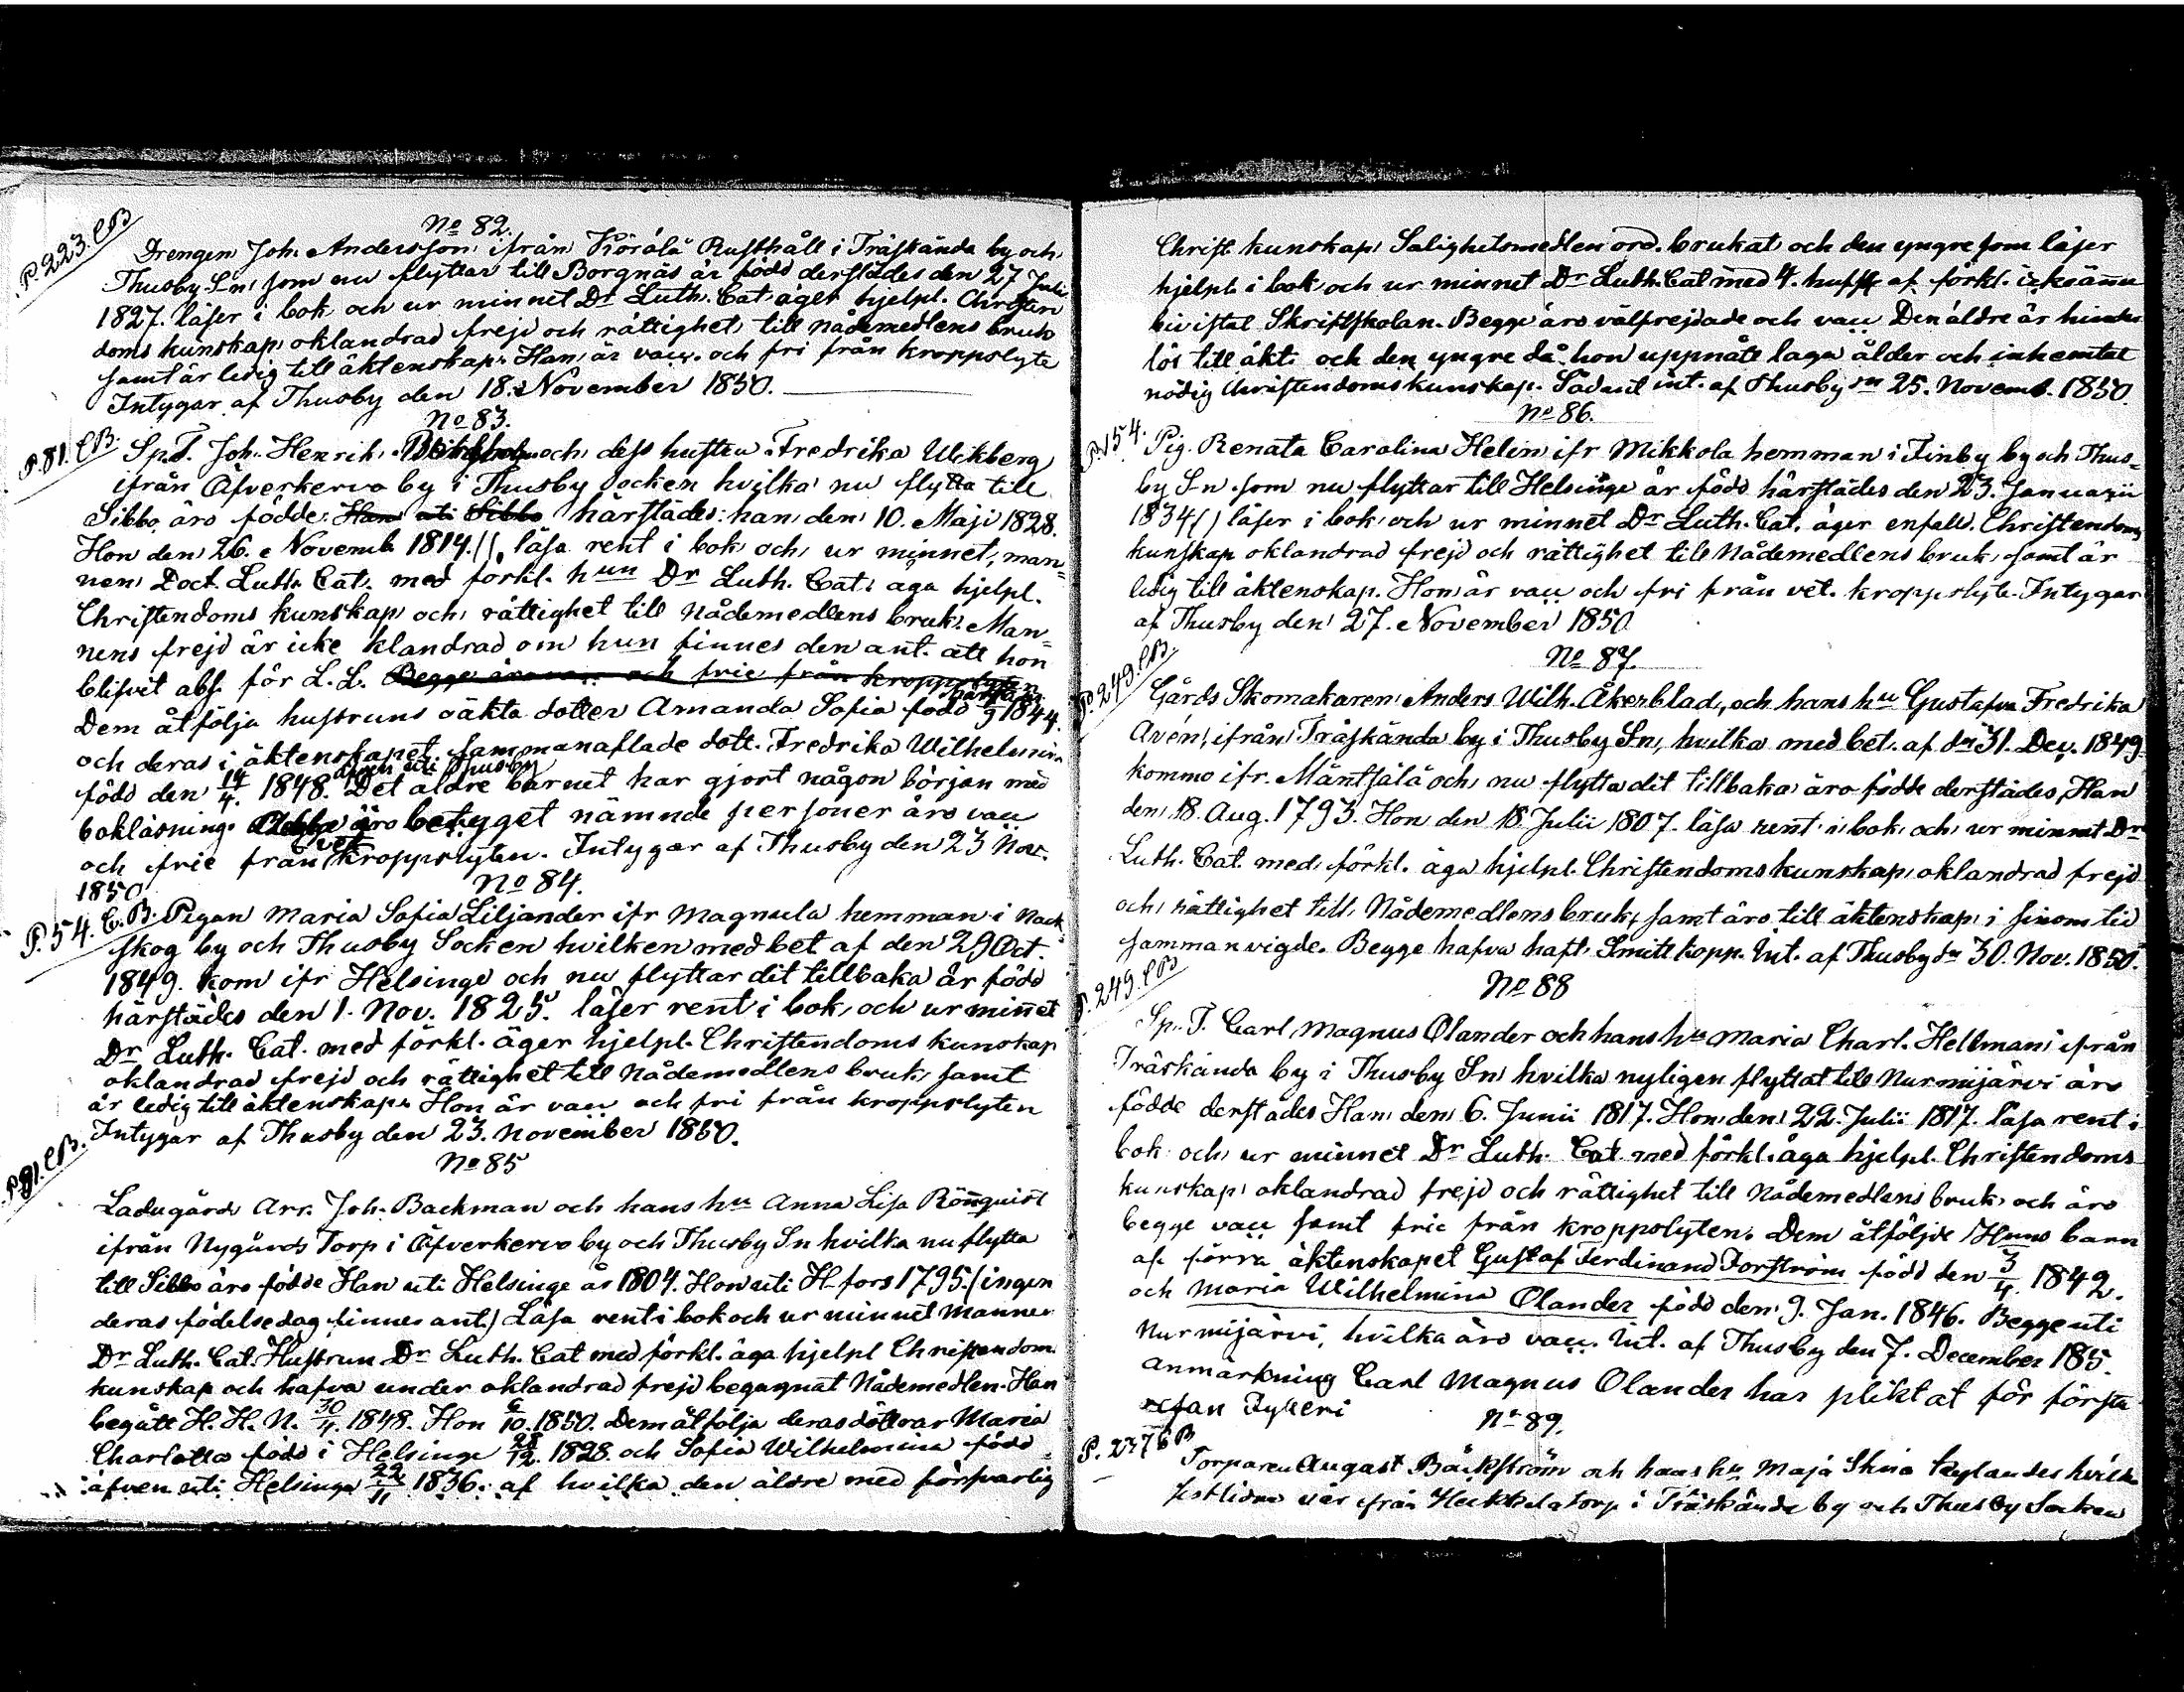 P. 223. CB
No 82.
Drengen Joh. Andersson ifrån Körölä Rusthåll i Träskända by och
Thusby Sn som nu flyttar till Borgnäs är född derstädes den 27 Juli
1827. läser i bok och ur minnet Dr Luth. Cat. äger hjelpl. Christen
doms kunskap oklandrad frejd och rättighet till Nådemedlens bruk
samt är ledig till äktenskap. Han är vacc. och fri från kroppslyte
Intygar af Thusby den 18. November 1850.
No 83.
P. 81. CB.
Sp. T. Joh. Henrik och dess hustru Fredrika Wikberg
ifrån Äfverkervo by i Thusby socken hvilka nu flytta till
Sibbo äro födde Han uti Sibbo härstädes: han den 10. Maji 1828.
Hon den 26. November 1814. läsa rent i bok och ur minnet, man=
nen Doct. Luth. Cat. med förkl. hun Dr Luth. Cat. äga hjelpl.
Christendoms kunskap och rättighet till Nådemedlens bruk. Man=
nens frejd är icke klandrad om hun finnes den ant. att hon
blifvit abs. för L. L. Begge äro vacc. och frie från kroppslyten
Dem åtfölja hustruns oäkta dotter Amanda Sofia född 9 1844.
och deras i äktenskapet sammanaflade dott. Fredrika Wilhelmina
född den 14/4. 1848. äfven uti Thusby Det äldre barnet har gjort någon början med
boklåsning. äro betyget nämnde personer äro vacc
och frie från vet. kroppslyten. Intygar af Thusby den 23 Nov.
1850
No 84.
P. 54. C. B.
Pigan Maria Sofia Liljander ifr Magnula hemman i Nack=
skog by och Thusby Socken hvilken med bet af den 29 Oct.
1849. kom ifr Helsinge och nu flyttar dit tillbaka är född
härstädes den 1. Nov. 1825. läser rent i bok och ur minnet
Dr Luth. Cat. med förkl. äger hjelpl. Christendoms kunskap
oklandrad frejd och rättighet till Nådemedlens bruk, samt
är ledig till äktenskap. Hon är vacc och fri från kroppslyten
Intygar af Thusby den 23. November 1850.
P. 91. CB.
No 85
Ladugårds Arr. Joh. Backman och hans hu Anna Lisa Rönquist
ifrån Nygårds Torp i Äfverkervo by och Thusby Sn hvilka nu flytta
till Sibbo äro födde Han uti Helsinge år 1804. Hon uti H-fors 1795. (ingen
deras födelsedag finnes ant.) Läsa rent i bok och ur minnet Mannen
Dr Luth. Cat. Hustrun Dr Luth. Cat med förkl. äga hjelpl Christendom.
kunskap och hafva under oklandrad frejd begagnat Nådemedlen. Han
begått H. H. N. 30/4. 1848. Hon 6/10. 1850. Dem åtfölja deras döttrar Maria
Charlotta född i Helsinge 28/12. 1828. och Sofia Wilhelmina född
äfven uti Helsinge 22/11 1836. af hvilka den äldre med försvarlig
Christ. kunskap Salighetsmedlen ord. brukat och den yngre som läser
hjelpl. i bok och ur minnet Dr Luth. Cat med 4. hufst af förkl. ickeännu
bivistat Skriftskolan. Begge äro välfrejdade och vacc Den äldre är hinder
lös till äkt. och den yngre då hon uppnått laga ålder och inhemtat
nödig Christendomskunskap. Sådant int. af Thusby den 25. Novemb. 1850.
No 86.
P. 154.
Pig. Renata Carolina Helin ifr Mikkola hemman i Finby by och Thus=
by Sn. som nu flyttar till Helsinge är född härstädes den 23. Januarii
1834 läser i bok och ur minnet Dr Luth. Cat. äger enfald. Christendoms
kunskap oklandrad frejd och rättighet till Nådemedlens bruk, samt är
ledig till äktenskap. Hon är vacc och fri från vet. kroppslyte. Intygar
af Thusby den 27. November 1850
No 87.
P. 249. CB.
Gårds Skomakaren Anders Wilh. Åkerblad, och hans hu Gustafva Fredrika
Avén, ifrån Träskända by i Thusby Sn, hvilka med bet. af den 31. Dec. 1849.
kommo ifr. Mäntsälä och nu flytta dit tillbaka äro födde derstädes, Han
den 18. Aug. 1793. Hon den 18 Julii 1807. läsa rent i bok och ur minnet Dr
Luth. Cat. med förkl. äga hjelpl. Christendoms kunskap, oklandrad frejd
och rättighet till Nådemedlens bruk, samt äro till äktenskap i sinom tid
sammanvigde. Begge hafva haft Smittkopp. Int. af Thusby dn 30. Nov. 1850.
P. 249. CB
No 88
Sp. T. Carl Magnus Olander och hans hu Maria Charl. Hellman ifrån
Träskända by i Thusby Sn hvilka nyligen flyttat till Nurmijärvi äro
födde derstädes Han den 6. Junii 1817. Hon den 22. Julii 1817. läsa rent i
bok och ur minnet Dr Luth. Cat med förkl. äga hjelpl. Christendoms
kunskap oklandrad frejd och rättighet till Nådemedlens bruk och äro
begge vacc samt frie från kroppslyten. Dem åtföljde Huns barn
af förra äktenskapet Gustaf Ferdinand Forström född den 3/4. 1842.
och Maria Wilhelmina Olander född den 9. Jan. 1846. Begge uti
Nurmijärvi, hvilka äro vacc. Int. af Thusby den 7. December 185.
Anmärkning Carl Magnus Olander har pliktat för första
resan Fylleri
No 89.
P. 237 CB
Torparen August Bäckström och hans hu Maja Stina hvilka
sistlidne vår ifrån torp i Träskända by och Thusby Socken